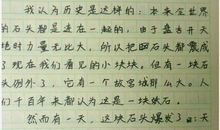 我认为历史是这样的：本来全世界
的石头都是连在一起的，由于盘古开天
地时力量无比大，所以把石头都震成
了现在我们看见的小块块，但有一块石
头例外了，它有一个故宫城那么大。人
们千百年来都认为这是一块坏石
然而有一天，这块石头爆发了：天